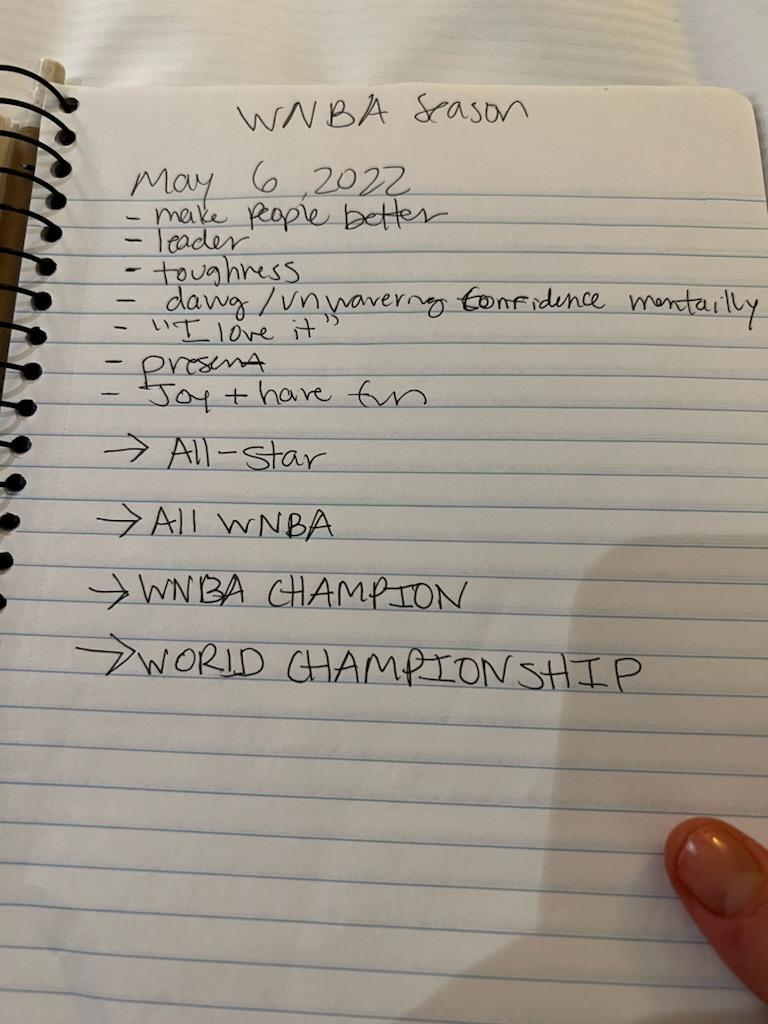 WNBA Season
May 6, 2022
- make people better
- leader
- toughness
- dawg / unwavering confidence mentailly
- "I love it"
- present
- Joy + have fun
→ All-Star
→ All WNBA
→ WNBA CHAMPION
→ WORLD CHAMPIONSHIP